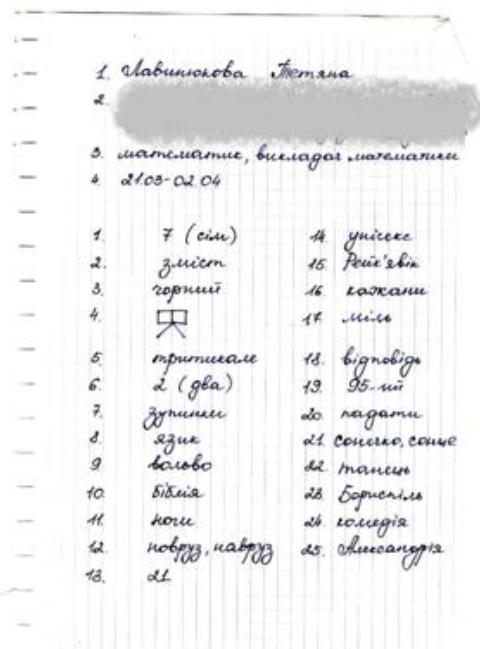 1. Лавинюкова Тетяна
2.
3. математик, викладач математики
4. 21.03-02.04
1. 7 (сім)
2. зміст
3. чорний
4.
5. тритикале
6. 2 (два)
7. зупинки
8. язик
9. вольво
10. біблія
11. ноги
12. новруз, навруз
13. 21
14. унісекс
15. Рейк'явік
16. кажани
17. міль
18. відповідь
19. 95-ий
20. падати
21. сонечко, сонце
22. танець
23. Бориспіль
24. комедія
25. Александрія